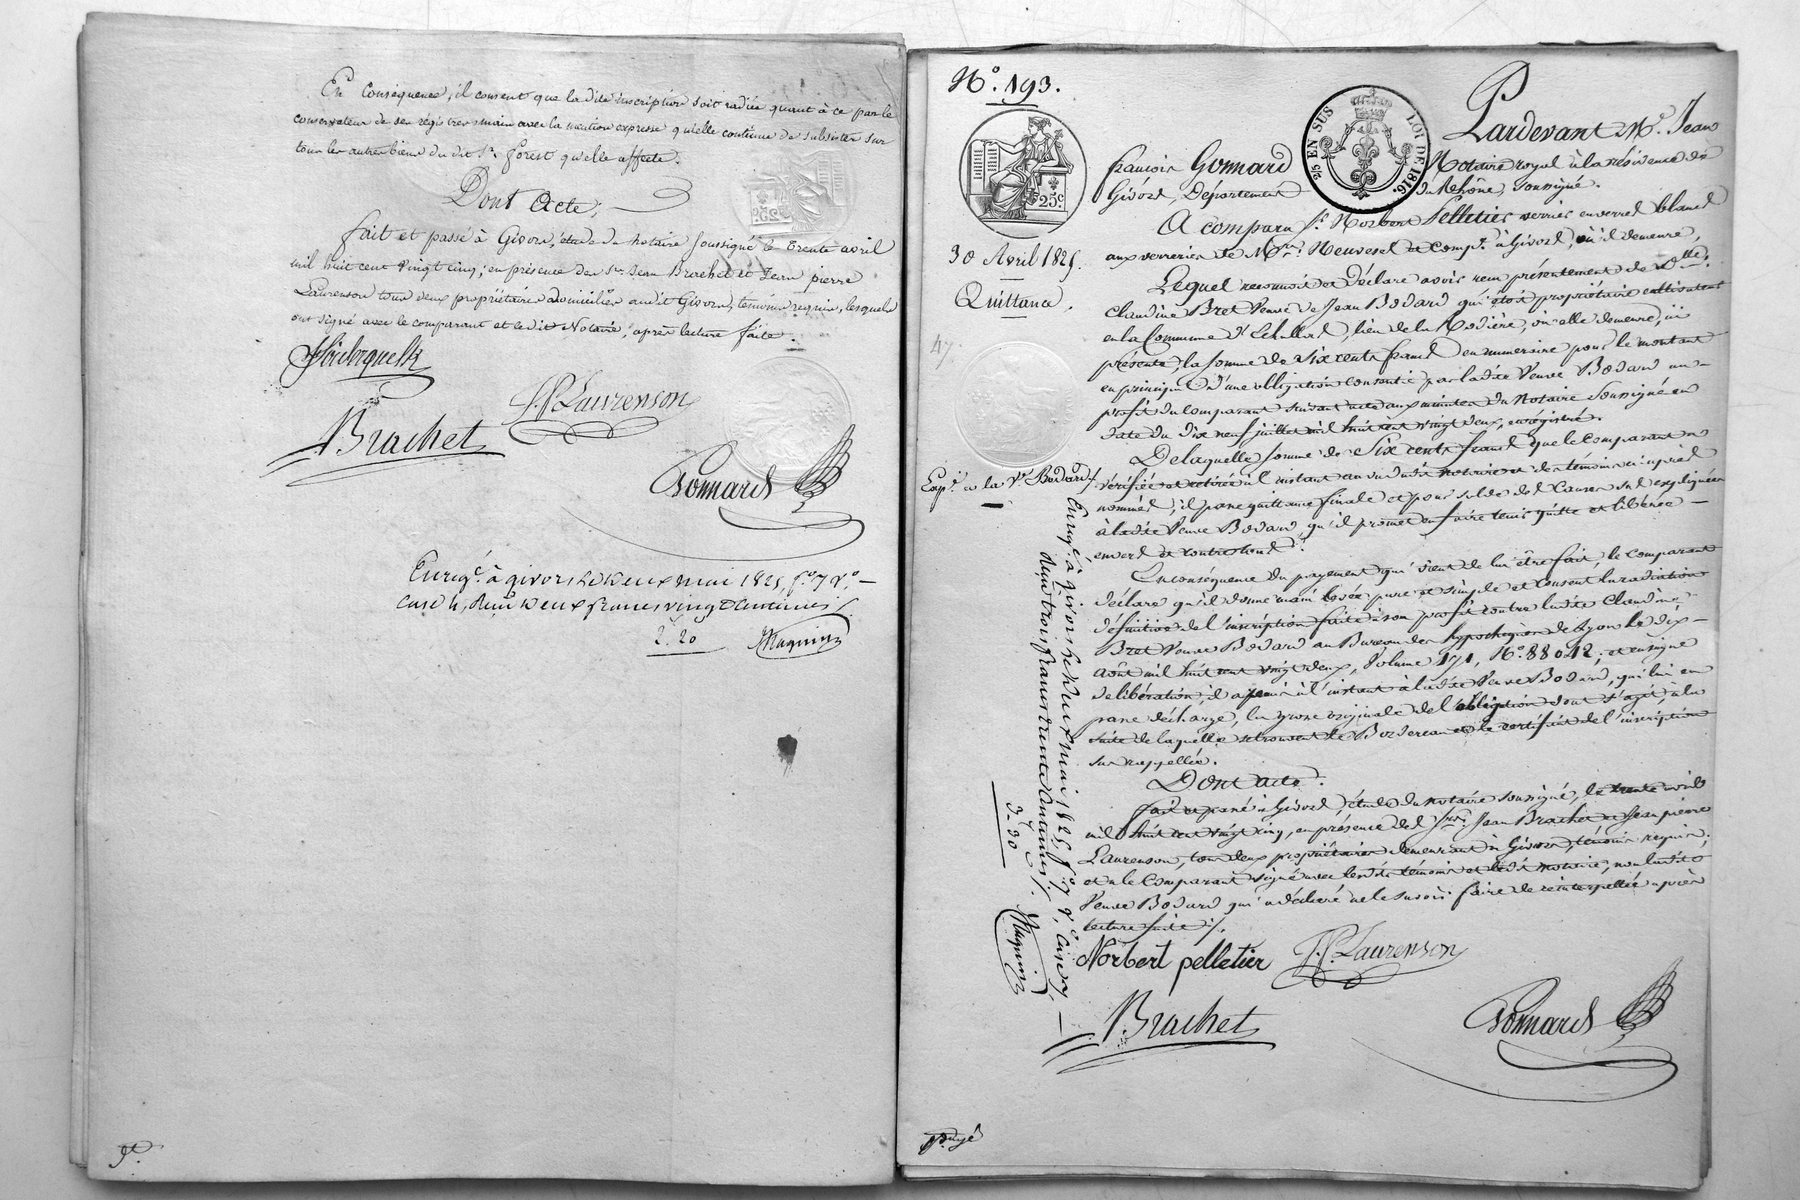 En Conséquence, il consent que la dite inscription soit radiée quant à ce par le
conservateur de ses registres mais avec la mention expresse qu'elle continue de subsister sur
tous les autres biens du dit Sr. forest qu'elle affecte.
Dont Acte,
fait et passé à Givors, étude du notaire soussigné le trente avril
mil huit cent vingt cinq, en présence des Srs. Jean Brachet et Jean pierre
Laurenson tous deux propriétaires domiciliés audit Givors, témoins requis, lesquels
ont signé avec le comparant et ledit Notaire, après lecture faite.
J.P. Laurenson
Brachet
Gonnard
Enregé. à givors le deux mai 1825, fo. 7 Vo.
case 4, Reçu deux francs vingt centimes
2.20
Magnin
No. 193.
25c
2/5 EN SUS LOI DE 1816.
30 Avril 1825.
Quittance.
47
Expé. à la Ve Bodard
Pardevant Me. Jean
françois Gonnard Notaire royal à la résidence de
Givors, Département du Rhône soussigné.
A comparu Sr. Norbert Pelletier verrier en verre blanc
aux verreries de Mrs. Neuvesel et Compe. à Givors, où il demeure,
Lequel reconnait et déclare avoir reçu présentement de
Claudine Bret Veuve de Jean Bodard qui étoit propriétaire cultivateur
en la Commune d'Echallas, lieu de la Rodière, où elle demeure, ici
présente, la somme de six cents francs en numéraire pour le montant
en principal d'une obligation consentie par ladite Veuve Bodard au
profit du comparant suivant acte aux minutes du Notaire soussigné en
date du dix neuf juillet mil huit cent vingt deux, enregistré.
De laquelle somme de Six cents francs que le Comparant a
vérifiée et retirée à l'instant au vu dudit notaire et des témoins ci après
nommés, il passe quittance finale et pour solde des causes sus expliquées
à ladite Veuve Bodard, qu'il promet en faire tenir quitte et libérée
envers et contre tous.
En conséquence du payement qui vient de lui être fait, le comparant
déclare qu'il donne main levée pure et simple et consent la radiation
définitive de l'inscription faite à son profit contre ladite Claudine
Bret Veuve Bodard au Bureau des hypothèques de Lyon le dix
août mil huit cent vingt deux, Volume 171, No. 88042; et en signe
de libération, il a remis à l'instant à ladite Veuve Bodard, qui lui en
passe décharge, la grosse originale de l'obligation dont s'agit, à la
suite de laquelle se trouvent le Bordereau et le certificat de l'inscription
sus rappellée.
Dont acte.
fait et passé à Givors, étude du notaire soussigné, le trente avril
mil huit cent vingt cinq, en présence des Srs. Jean Brachet et Jean pierre
Laurenson, tous deux propriétaires demeurant à Givors, témoins requis,
et a le Comparant signé avec lesdits témoins et ledit notaire, non ladite
Veuve Bodard qui a déclaré ne le savoir faire de ce interpellée après
lecture faite /.
Enregé. à givors le deux mai 1825, fo. 7 Vo. Case
Reçu trois francs trente centimes
3-30
Magnin
Norbert pelletier
J.P. Laurenson
Brachet
Gonnard